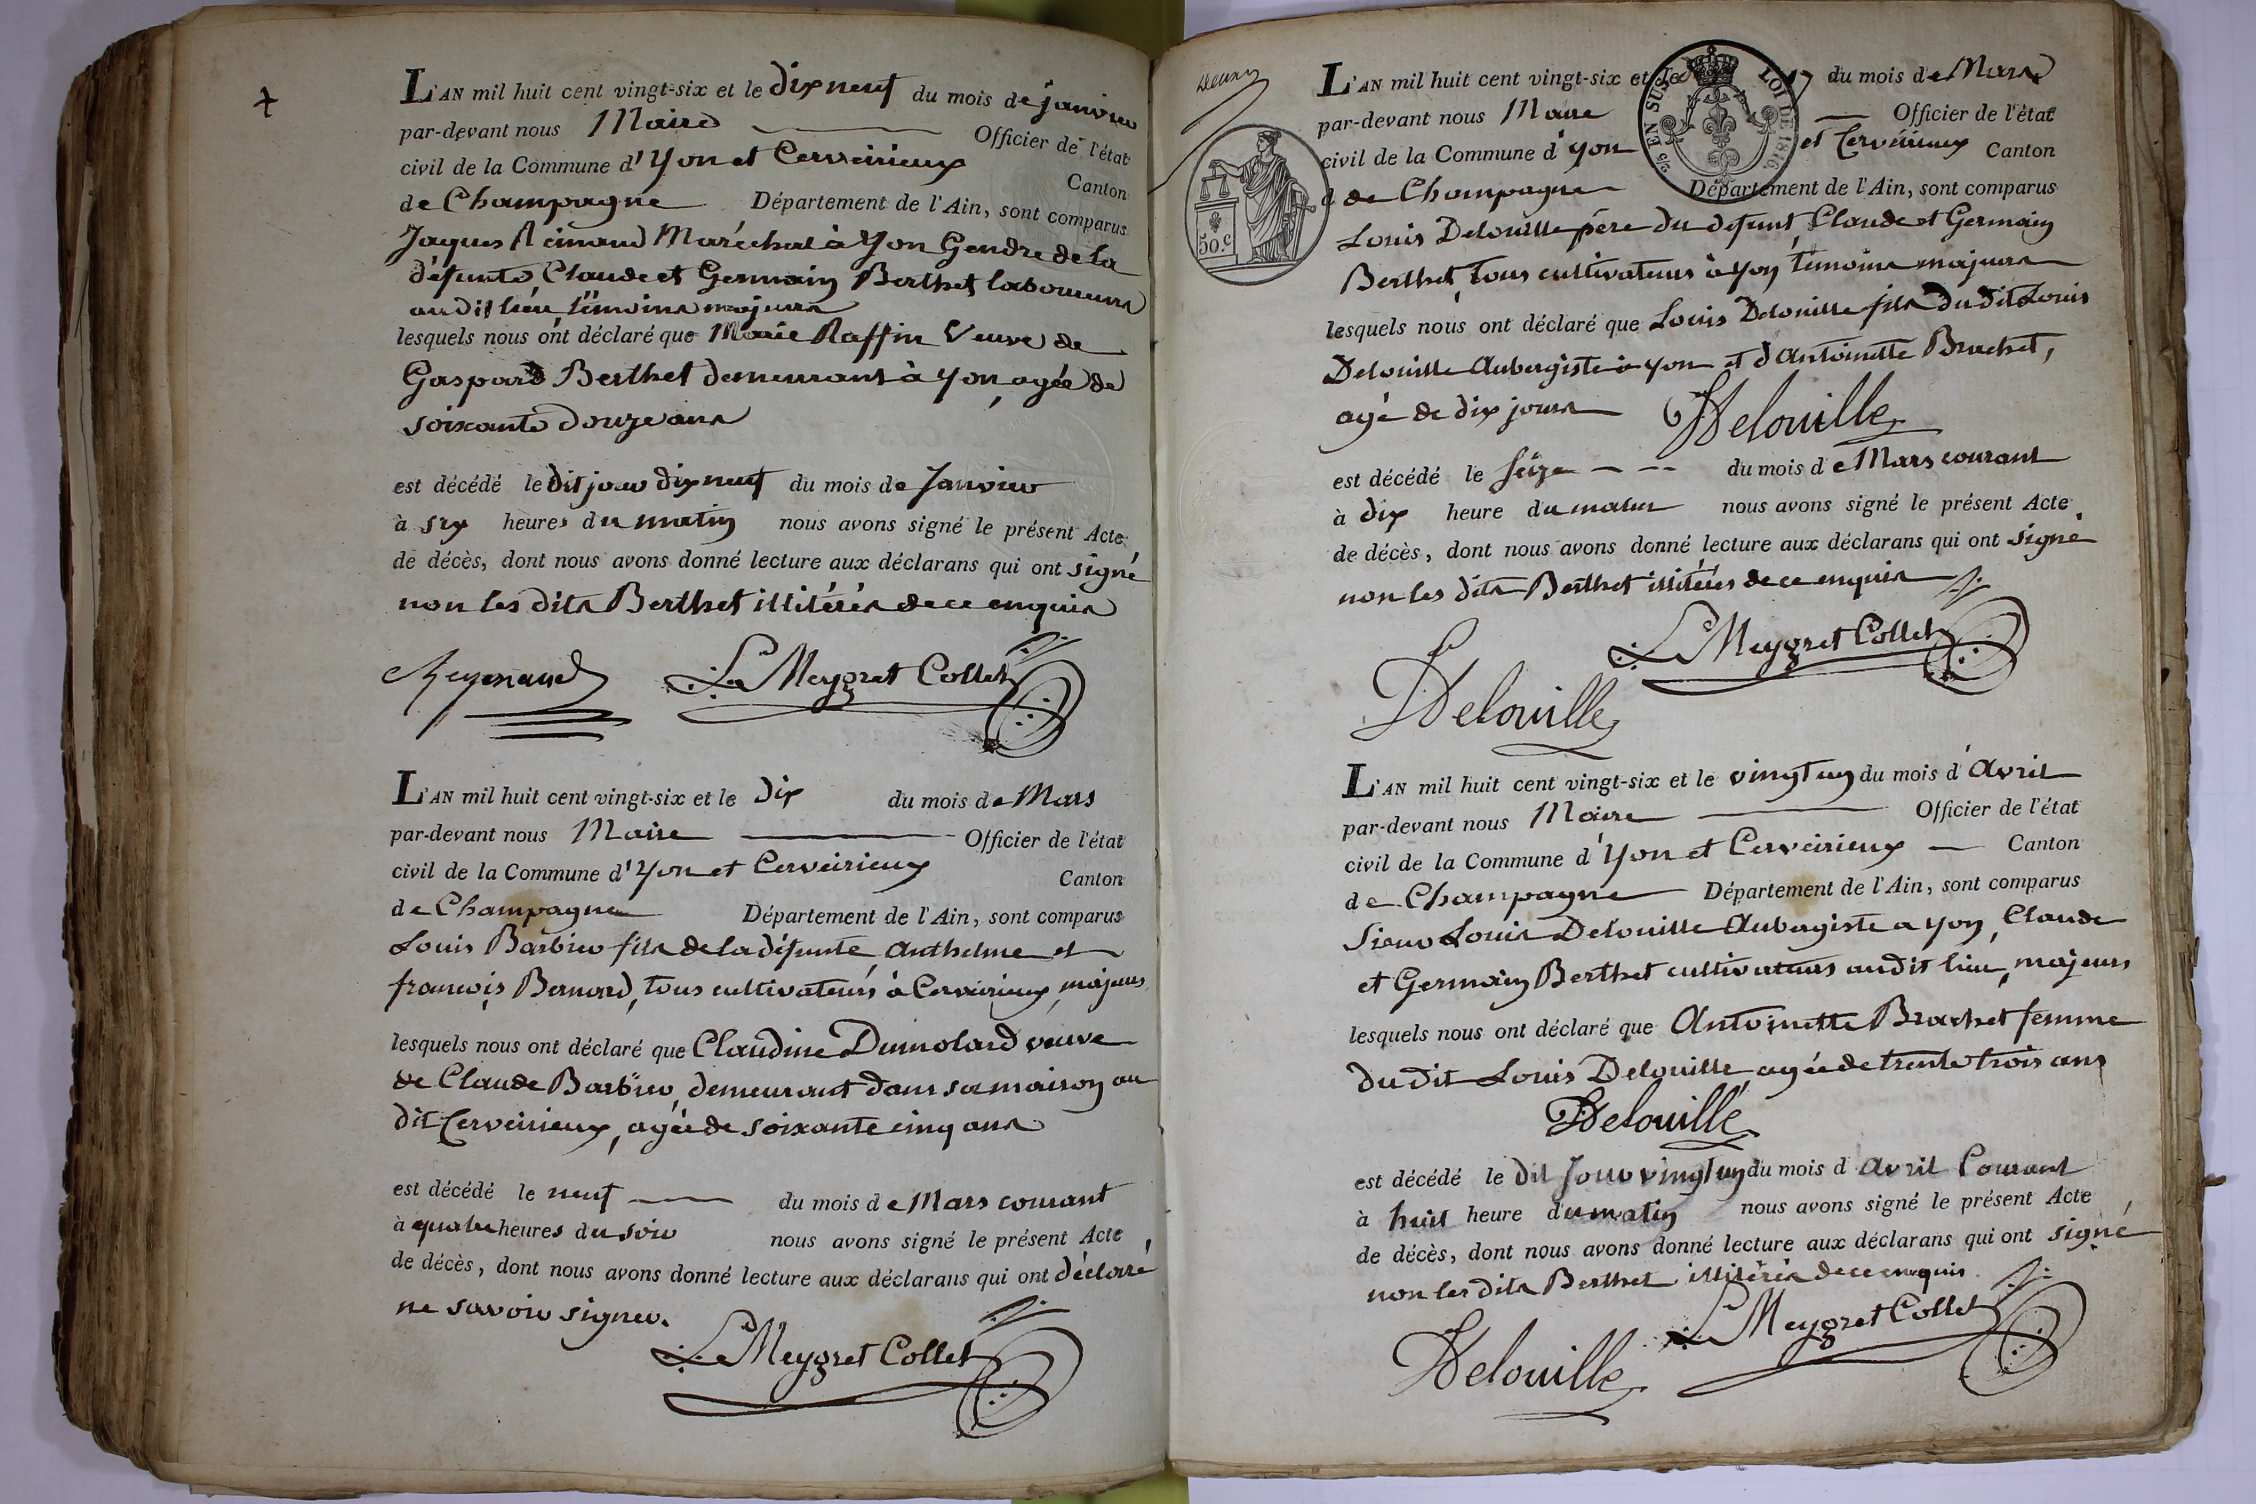 L'AN mil huit cent vingt-six et le dix neuf du mois de janvier
par-devant nous Maire Officier de l'état
civil de la Commune d'Yon et Cerveirieux
Canton
de Champagne Département de l'Ain, sont comparus
Jaques Reinaud Maréchal à Yon Gendre de la
défunte, Claude et Germain Berthet laboureurs
au dit lieu, témoins majeurs
lesquels nous ont déclaré que Marie Raffin Veuve de
Gaspard Berthet demeurant à Yon, agée de
soixante douze ans
est décédé le dit jour dix neuf du mois de Janvier
à six heures du matin nous avons signé le présent Acte
de décès, dont nous avons donné lecture aux déclarans qui ont signé
non les dits Berthet illitérés de ce enquis
Reynaud Le Meygret Collet
L'AN mil huit cent vingt-six et le dix du mois de Mars
par-devant nous Maire Officier de l'état
civil de la Commune d'Yon et Cerveirieux
Canton
de Champagne Département de l'Ain, sont comparus
Louis Barbier fils de la défunte, Anthelme et
françois Bernard, tous cultivateurs à Cerveirieux, majeurs
lesquels nous ont déclaré que Claudine Dumolard veuve
de Claude Barbier, demeurant dans sa maison au
dit Cerveirieux, agée de soixante cinq ans
est décédé le neuf du mois de Mars courant
à quatre heures du soir nous avons signé le présent Acte
de décès, dont nous avons donné lecture aux déclarans qui ont déclaré
ne savoir signer.
Le Meygret Collet
L'AN mil huit cent vingt-six et le 17 du mois de Mars
par-devant nous Maire Officier de l'état
civil de la Commune d'Yon et Cerveirieux Canton
de Champagne Département de l'Ain, sont comparus
EN SUS LOI DE 1816.
50.c
Louis Delouille père du défunt, Claude et Germain
Berthet, tous cultivateurs à Yon témoins majeurs
lesquels nous ont déclaré que Louis Delouille fils du dit Louis
Delouille Aubergiste à Yon et d'Antoinette Brachet,
agé de dix jours Delouille
est décédé le seize du mois de Mars courant
à dix heure du matin nous avons signé le présent Acte
de décès, dont nous avons donné lecture aux déclarans qui ont signé
non les dits Berthet illitérés de ce enquis
Le Meygret Collet
Delouille
L'AN mil huit cent vingt-six et le vingt un du mois d'Avril
par-devant nous Maire Officier de l'état
civil de la Commune d'Yon et Cerveirieux Canton
de Champagne Département de l'Ain, sont comparus
Sieur Louis Delouille Aubergiste a Yon, Claude
et Germain Berthet cultivateurs au dit lieu, majeurs
lesquels nous ont déclaré que Antoinette Brachet femme
du dit Louis Delouille agée de trente trois ans
Delouille
est décédé le dit Jour vingt un du mois d'Avril Courant
à huit heure du matin nous avons signé le présent Acte
de décès, dont nous avons donné lecture aux déclarans qui ont signé
non les dits Berthet illitérés de ce enquis
Le Meygret Collet
Delouille